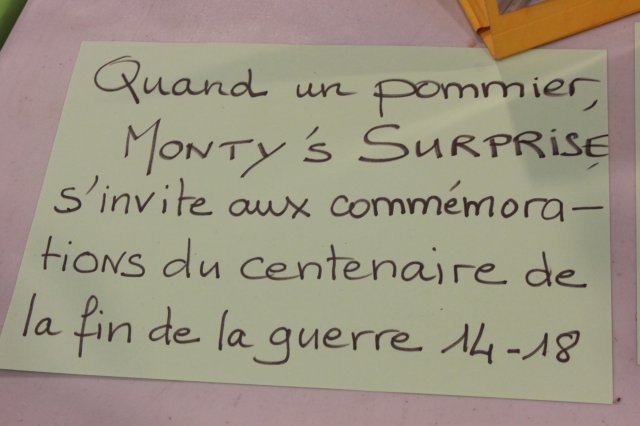 Quand un pommier,
MONTY'S SURPRISE,
s'invite aux commémora-
tions du centenaire de
la fin de la guerre 14-18